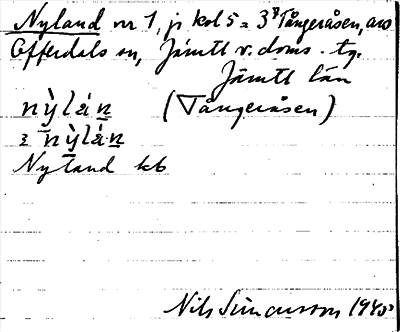 Nyland nr 1, jr kol 5 = 3⁷ Tångeråsen, avs
Offerdals sn, Jämtl v. doms. tg.
Jämtl län
nỳlán (Tångeråsen)
ꝫ nỳlá·n
Nyland kb
Nils Simonsson 1940